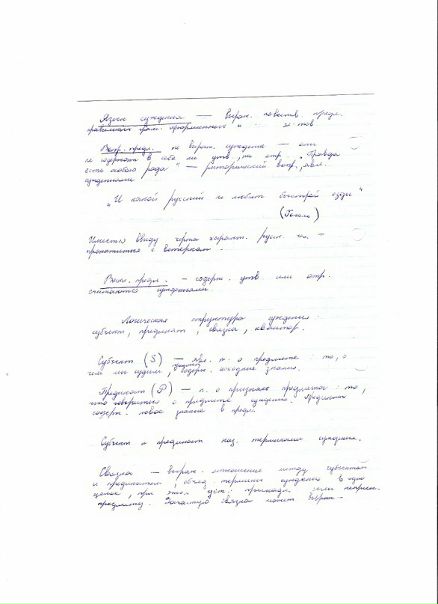 Языки суждения — Выраж. повеств. предл.
правильно грам. оформленного и
Вопр. предл. не выраж. суждение —
не содержат в себе ни утв., ни отр. "Правда
есть особого рода" — риторический вопр., явл.
суждением.
"И какой русский не любит быстрой езды"
(Гоголь)
Иместь ввиду черта характ. русск.
прокатиться с ветерком.
Воскл. предл. — содерж. утв. или отр.
считаются суждениями.
Логическая структура суждения
субъект, предикат, связка, квантор.
Субъект (S) — п. о предмете: то, о
чем мы судим, содерж. исходные знания.
Предикат (P) — п. о признаке предмета: то,
что говорится о предмете суждения. Предикат
содерж. новое знание о предм.
Субъект и предикат наз. терминами суждения.
Связка — выраж. отношение между субъектом
и предикатом, объед. термины суждения в одно
целое, при этом уст.
предмету. Зачастую связка может выраж.